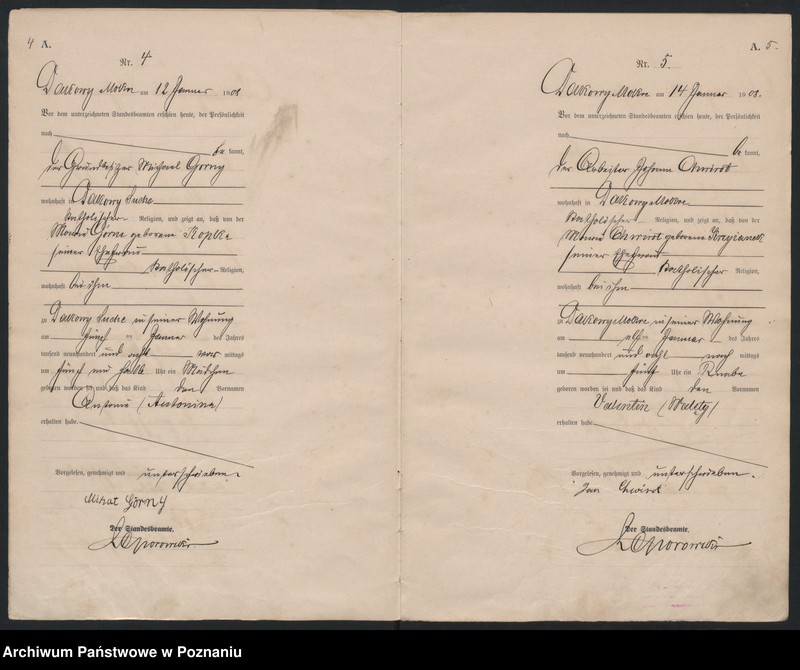 4 A.
Nr. 4
Dakowy Mokre am 12 Januar 1908
Vor dem unterzeichneten Standesbeamten erschien heute, der Persönlichkeit
nach
be kannt,
der Grundbesitzer Michael Gorny
wohnhaft in Dakowy Suche
katholischer Religion, und zeigt an, daß von der
Górna geborene Kopka
seiner Ehefrau
katholischer Religion,
wohnhaft bei ihm
in Dakowy Suche in seiner Wohnung
am fünf ten Januar des Jahres
tausend neunhundert und acht vor mittags
um fünf und halb Uhr ein Mädchen
geboren worden sei und daß das Kind den Vornamen
Antonie (Antonina)
erhalten habe.
Vorgelesen, genehmigt und unterschrieben.
Michał Górny
Der Standesbeamte.
A. 5.
Nr. 5.
Dakowy Mokre am 14 Januar 1908.
Vor dem unterzeichneten Standesbeamten erschien heute, der Persönlichkeit
nach
be kannt,
der Arbeiter Johann Chwirot
wohnhaft in Dakowy Mokre
katholischer Religion, und zeigt an, daß von der
Chwirot geborene
seiner Ehefrau
katholischer Religion,
wohnhaft bei ihm
in Dakowy Mokre in seiner Wohnung
am elf ten Januar des Jahres
tausend neunhundert und acht nach mittags
um fünf Uhr ein Knabe
geboren worden sei und daß das Kind den Vornamen
Valentin (Walęty)
erhalten habe.
Vorgelesen, genehmigt und unterschrieben.
Jan Chwirot
Der Standesbeamte.
Archiwum Państwowe w Poznaniu